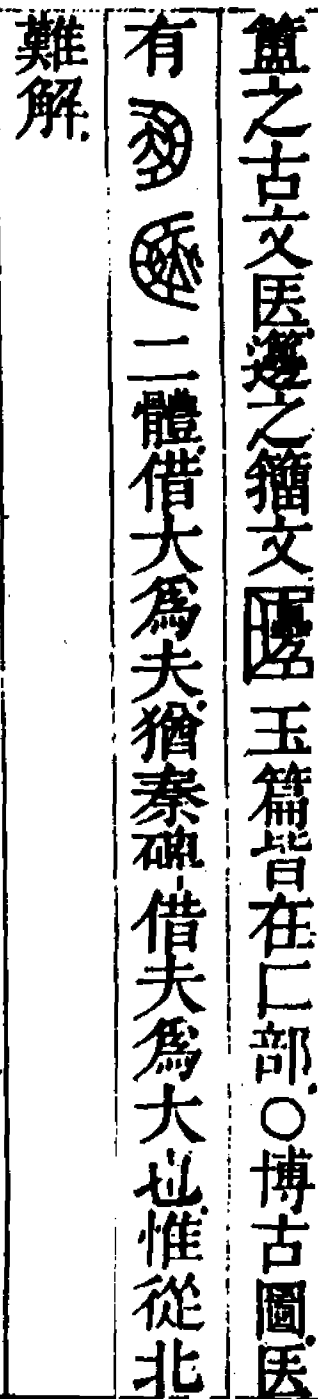 簠之古文匧籩之籀文𠥦玉篇皆在匚部○博古圖匧
有二體借大爲夫猶秦碑借夫爲大也惟從北
難解